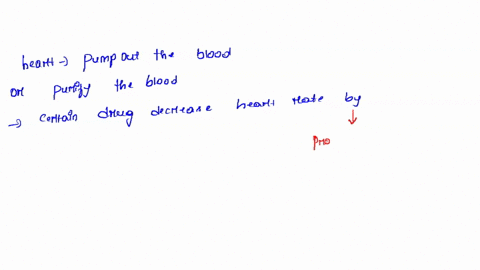 heart → pump out the blood
or purify the blood
→ certain drug decrease heart rate by
↓
pro